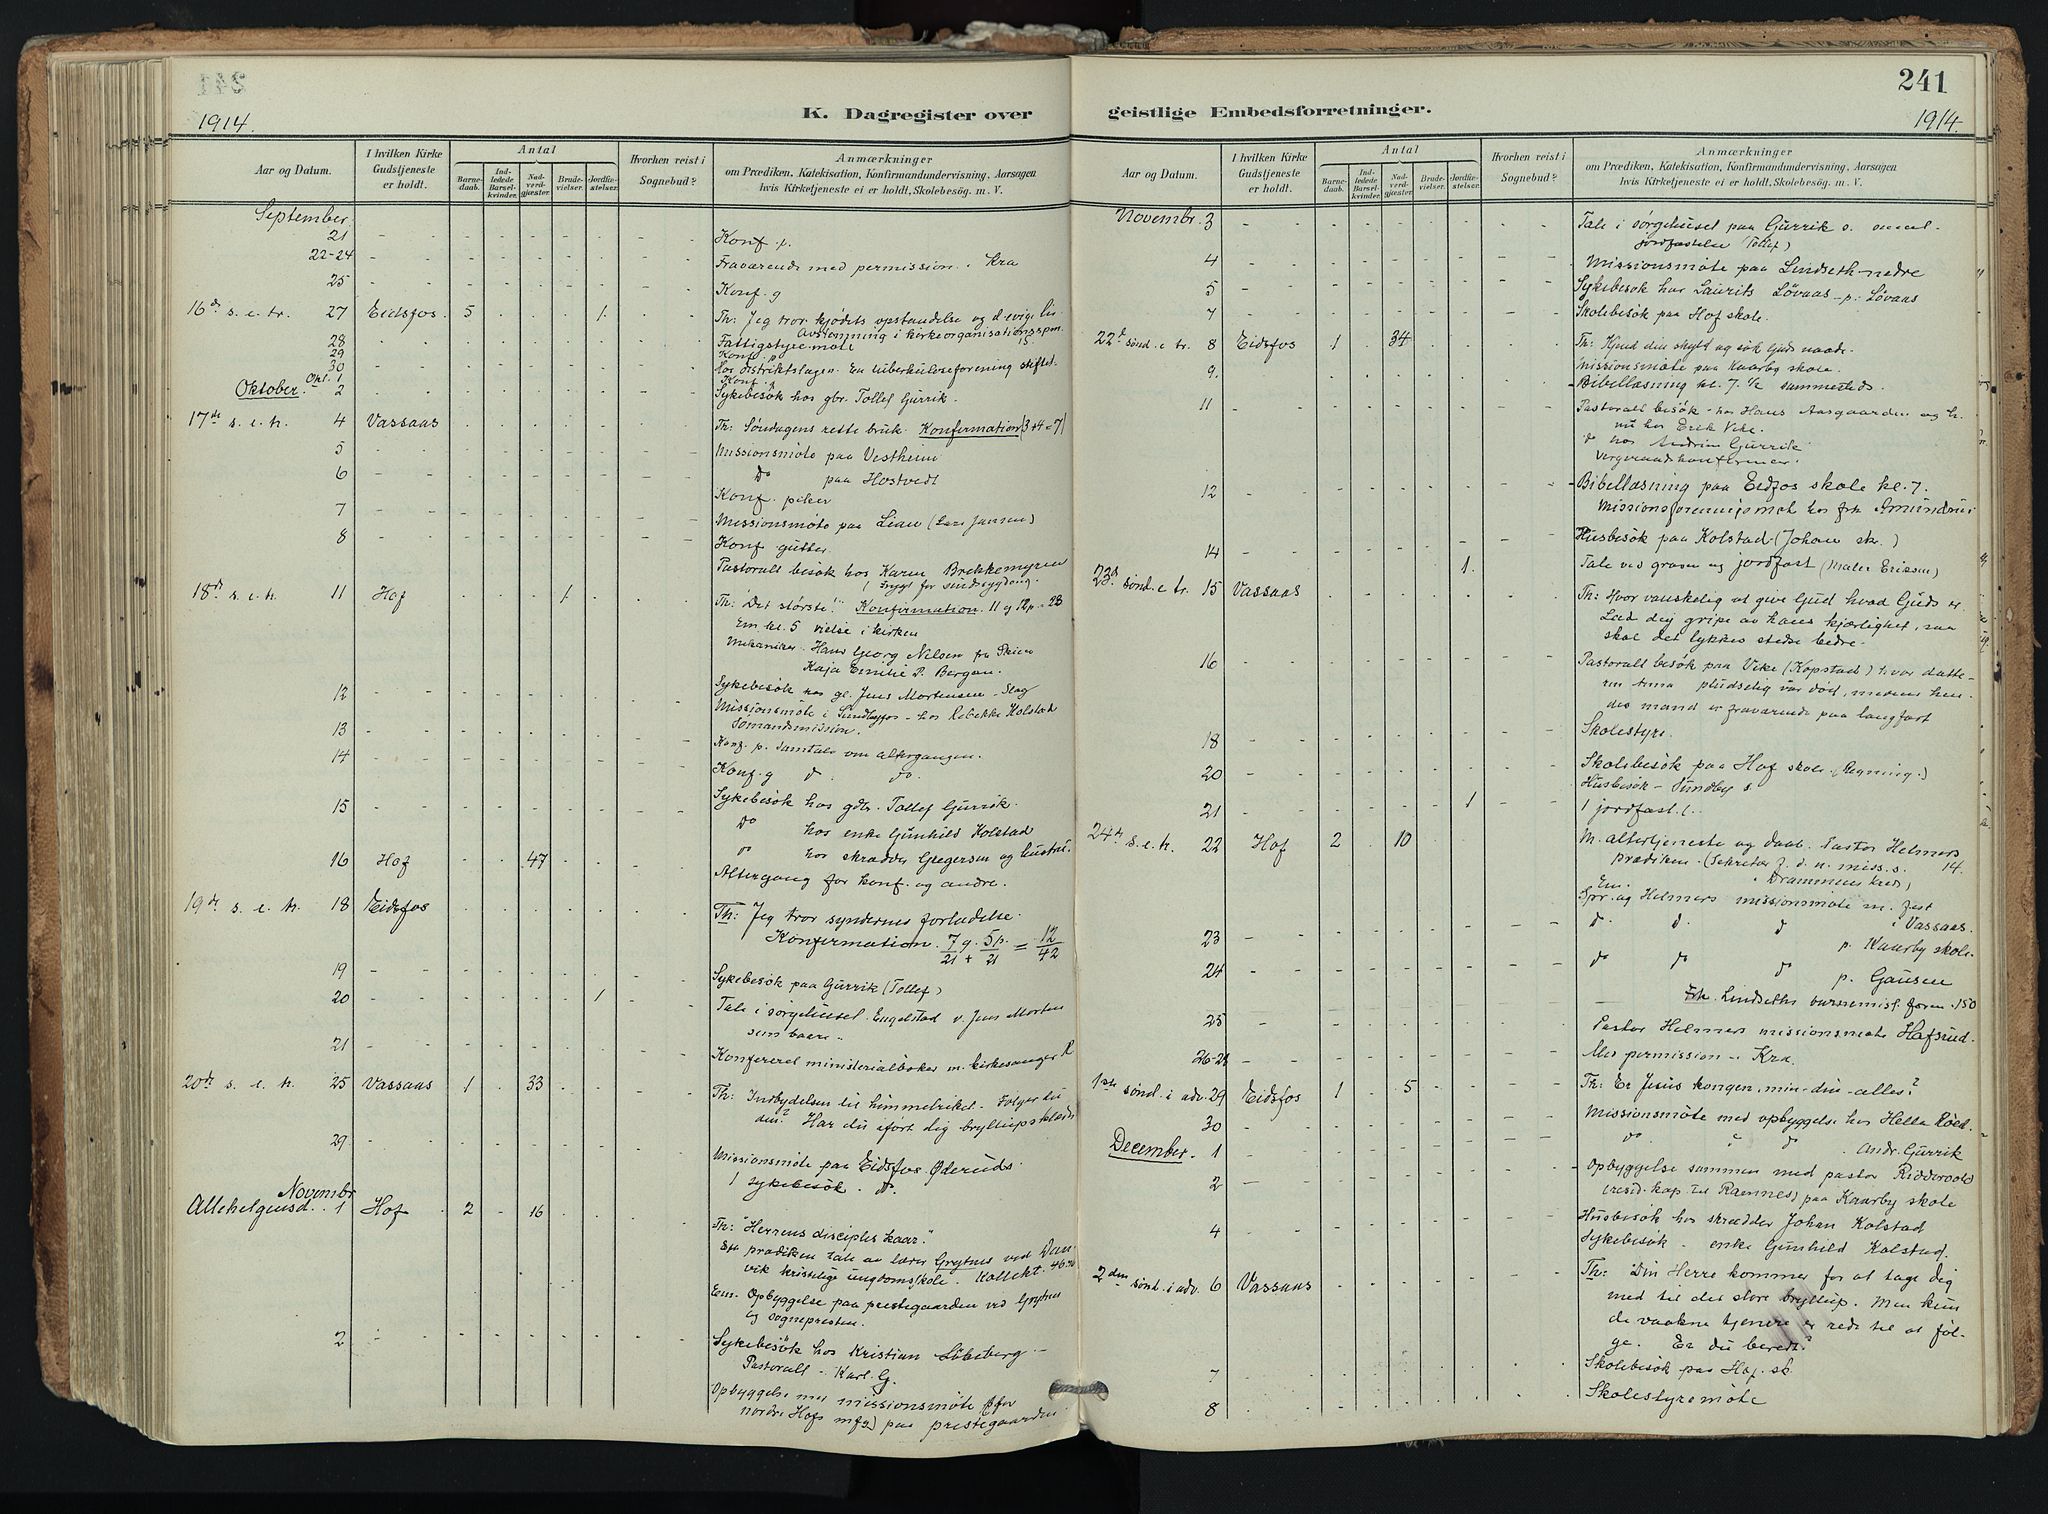 241
K. Dagregister over geistlige Embedsforretninger.
1914.
1914.
Aar og Datum.
I hvilken Kirke Gudstjeneste er holdt.
Antal
Barnedaab.
Indledede Barselkvinder.
Nadverdgjester.
Brudevielser.
Jordfæstelser.
Hvorhen reist i Sognebud?
Anmærkninger
om Prædiken, Katekisation, Konfirmandundervisning, Aarsagen
hvis Kirketjeneste ei er holdt, Skolebesøg. m. V.
September
21 Konf. p.
22-24 Fraværende med permission i Kra
25 Konf. g
16de s. e. tr. 27 Eidsfos 5 1. Th: Jeg tror kjødets opstandelse og d. evige liv
Avstemning i kirkeorganisationsspm.
28 Fattigstyremøte 15.
29 Konf. p
30
Oktober Okt. 1 Konf. p.
2 Sykebesøk hos gbr. Tollef Gurrik.
17de s. e. tr. 4 Vassaas Th: Søndagens rette bruk. Konfirmation (3+4=7)
5 Missionsmøte paa Vestheim
6 do paa Hostvedt
Konf. piker
7 Missionsmøte paa Lian (Lars Jansen)
8 Konf. gutter
Pastoralt besøk hos Karen Brekkemyren
frygt for sindssygdom.
18de s. e. tr. 11 Hof 1 Th: "Det største!" Konfirmation. 11 g 17p = 28
Em. kl. 5 vielse i kirken
Mekaniker Hans Georg Nilsen fra Skien
Kaja Emilie P. Bergan.
12 Sykebesøk hos gl. Jens Mortensen - Slag
Missionsmøte i Sundbyfos - hos Rebekka Kolstad
13 Sømandsmission.
14 Konf. p. samtale om altergangen.
Konf. g do. do.
15 Sykebesøk hos gbr. Tollef Gurrik.
do hos enke Gunhild Kolstad
do hos skrædder Gregersen og hustru.
16 Hof 47 Altergang for konf. og andre.
19de s. e. tr. 18 Eidsfos Th: Jeg tror syndernes forladelse.
Konfirmation. 7/21 g. + 5/21 p. = 12/42
19 Sykebesøk paa Gurrik (Tollef)
20 1 Tale i sørgehuset Engelstad v. Jens Mortensens baare
21 Konfereret ministerialbøker m. kirkesanger R
20de s. e. tr. 25 Vassaas 1 33 Th: Indbydelsen til himmelriket. Følger du
den? Har du iført dig bryllupsklædn
29 Missionsmøte paa Eidsfos. Øderuds.
1 sykebesøk. do.
Novembr
Allehelgensd. 1 Hof 2 16 Th: "Herrens disciples kaar."
prædiken tale av lærer Grytnes ved Danvik
kristelige ungdomsskole. Kollekt.
Em. Opbyggelse paa prestegaarden ved Grytnes
og sognepresten.
2 Sykebesøk hos Kristian Løbeberg
Pastoralt - Karl G.
Opbyggelse med missionsmøte (for
nordre Hofs mfg) paa prestegaarden
241
Aar og Datum.
I hvilken Kirke Gudstjeneste er holdt.
Antal
Barnedaab.
Indledede Barselkvinder.
Nadverdgjester.
Brudevielser.
Jordfæstelser.
Hvorhen reist i Sognebud?
Anmærkninger
om Prædiken, Katekisation, Konfirmandundervisning, Aarsagen
hvis Kirketjeneste ei er holdt, Skolebesøg. m. V.
Novembr. 3 Tale i sørgehuset paa Gurrik
jordfæstelse Tollef)
4 Missionsmøte paa Lindseth nedre
5 Sykebesøk hos Laurits Løvaas p. Løvaas
7 Skolebesøk paa Hof skole.
22de sønd. e tr. 8 Eidsfos 1 34 Th: Kjend din skyld og søk Guds naade.
9. Missionsmøte paa Kaarby skole.
Bibellæsning kl. 7 1/2 sammesteds.
11 Pastoralt besøk hos Hans Aasgaarden og h.
nu hos Erik Vike.
do hos Andrin Gurrik
Vergeraadskonferencer.
12 Bibellæsning paa Eidsfos skole kl. 7.
Missionsforeningsmøt hos frk Amundrud
14 Husbesøk paa Kolstad (Johan sk.)
1. Tale ved graven og jordfæst (Maler Eriksen)
23de sønd. e tr. 15 Vassaas Th: Hvor vanskelig at give Gud hvad Guds er
Lad dig gripe av hans kjærlighet, saa
skal det lykkes stedse bedre.
16 Pastoralt besøk paa Vike (Kopstad) hvor datteren
Anna pludselig var død, mens hendes
mand er fraværende paa langfart
18 Skolestyre.
20 Skolebesøk paa Hof skole. (Regning.)
Husbesøk - Sundby s.
21 1 1 jordfæst.
24de s. e. tr. 22 Hof 2 10 M. altertjeneste og daab. Pastor Helmers
prædiken. (Sekretær f. d. n. miss. s. 14.
Drammens kreds)
Em.
Spr. og Helmers missionsmøte m. fest
i Vassaas.
23 do do do p. Kaarby skole.
24 do do do p. Gausen
Frk. Lindseths barnemisf. foren. 150
25 Pastor Helmers missionsmøte Hafsrud.
26-28 Med permission i Kra.
1ste sønd. i adv. 29 Eidsfos 1 5 Th: Er Jesus kongen, min - din - alles?
30 Missionsmøte med opbyggelse hos Hella Røed.
December. 1 do " do Andr. Gurrik
2 Opbyggelse sammen med pastor Riddervold
(resid. kap til Ramnes) paa Kaarby skole
4 Husbesøk hos skrædder Johan Kolstad
Sykebesøk - enke Gunhild Kolstad.
2den sønd. i adv. 6 Vassaas Th: Din Herre kommer for at tage dig
med til det store bryllup. Men kun
de vaakne tjenere er rede til at følge.
Er du beredt?
7 Skolebesøk paa Hof. sk.
8 Skolestyremøte